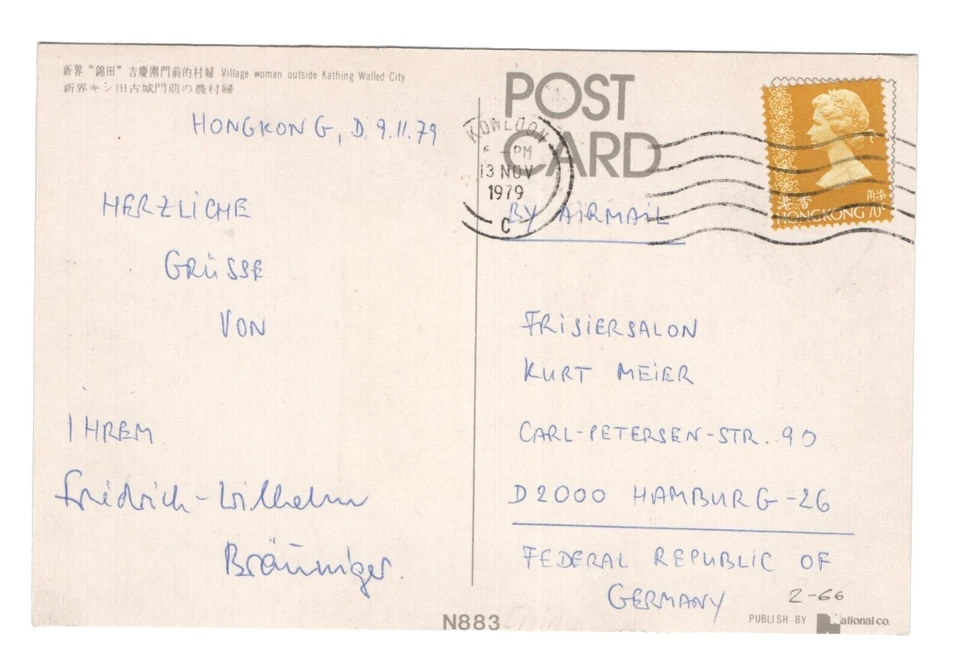 新界"錦田"吉慶圍門前的村婦 Village women outside Kathing Walled City
新界キン田古城門前の農村婦
HONGKONG, D. 9.11.79
HERZLICHE
GRÜSSE
VON
IHREM
Fridrich-Wilhelm
Bräuniger.
POST
CARD
KOWLOON
6 -PM
13 NOV
1979
C
香港
HONG KONG 70¢
BY AIRMAIL
FRISIERSALON
KURT MEIER
CARL-PETERSEN-STR. 90
D 2000 HAMBURG-26
FEDERAL REPUBLIC OF
GERMANY
2-66
PUBLISH BY National co.
N883